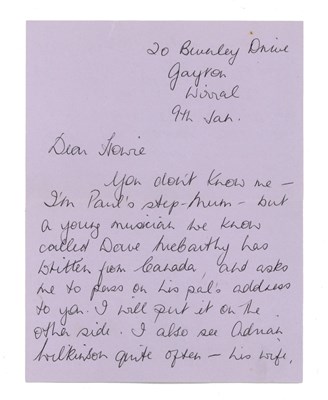 20 Beverley Drive
Gayton
Wirral
9th Jan.
Dear Howie
You don't know me –
I'm Paul's step-Mum – but
a young musician we know
called Dave McCarthy has
written from Canada, and asks
me to pass on his pal's address
to you. I will put it on the
other side. I also see Adrian
Wilkinson quite often – his wife,